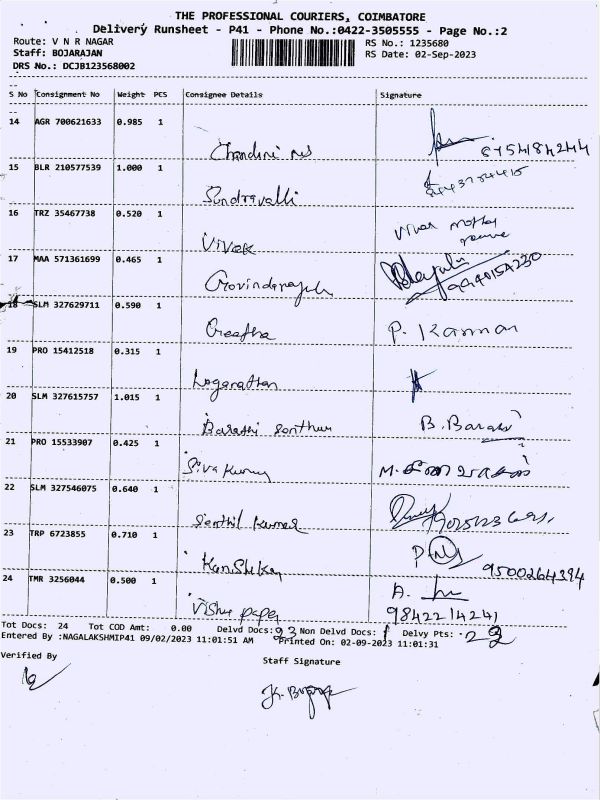 THE PROFESSIONAL COURIERS, COIMBATORE
Delivery Runsheet - P41 - Phone No.:0422-3505555 - Page No.:2
Route: V N R NAGAR
Staff: BOJARAJAN
DRS No.: DCJB123568002
RS No.: 1235680
RS Date: 02-Sep-2023
S No Consignment No Weight PCS Consignee Details Signature
14 AGR 700621633 0.985 1
Chandini 8754184244
15 BLR 210577539 1.000 1
Sundravalli
16 TRZ 35467738 0.520 1
Vivek
17 MAA 571361699 0.465 1
Govindarajulu
18 SLM 327629711 0.590 1
Geetha P. Kannan
19 PRO 15412518 0.315 1
Loganathan
20 SLM 327615757 1.015 1
Barathi Senthur B. Barathi
21 PRO 15533907 0.425 1
Siva Kumar
22 SLM 327546075 0.640 1
Senthil Kumar
23 TRP 6723855 0.710 1
Kanishka 9500264394
24 TMR 3256044 0.500 1
Vishnu paper 9842214241
Tot Docs: 24 Tot COD Amt: 0.00 Delvd Docs: 23 Non Delvd Docs: 1 Delvy Pts: 23
Entered By :NAGALAKSHMIP41 09/02/2023 11:01:51 AM Printed On: 02-09-2023 11:01:31
Verified By
Staff Signature